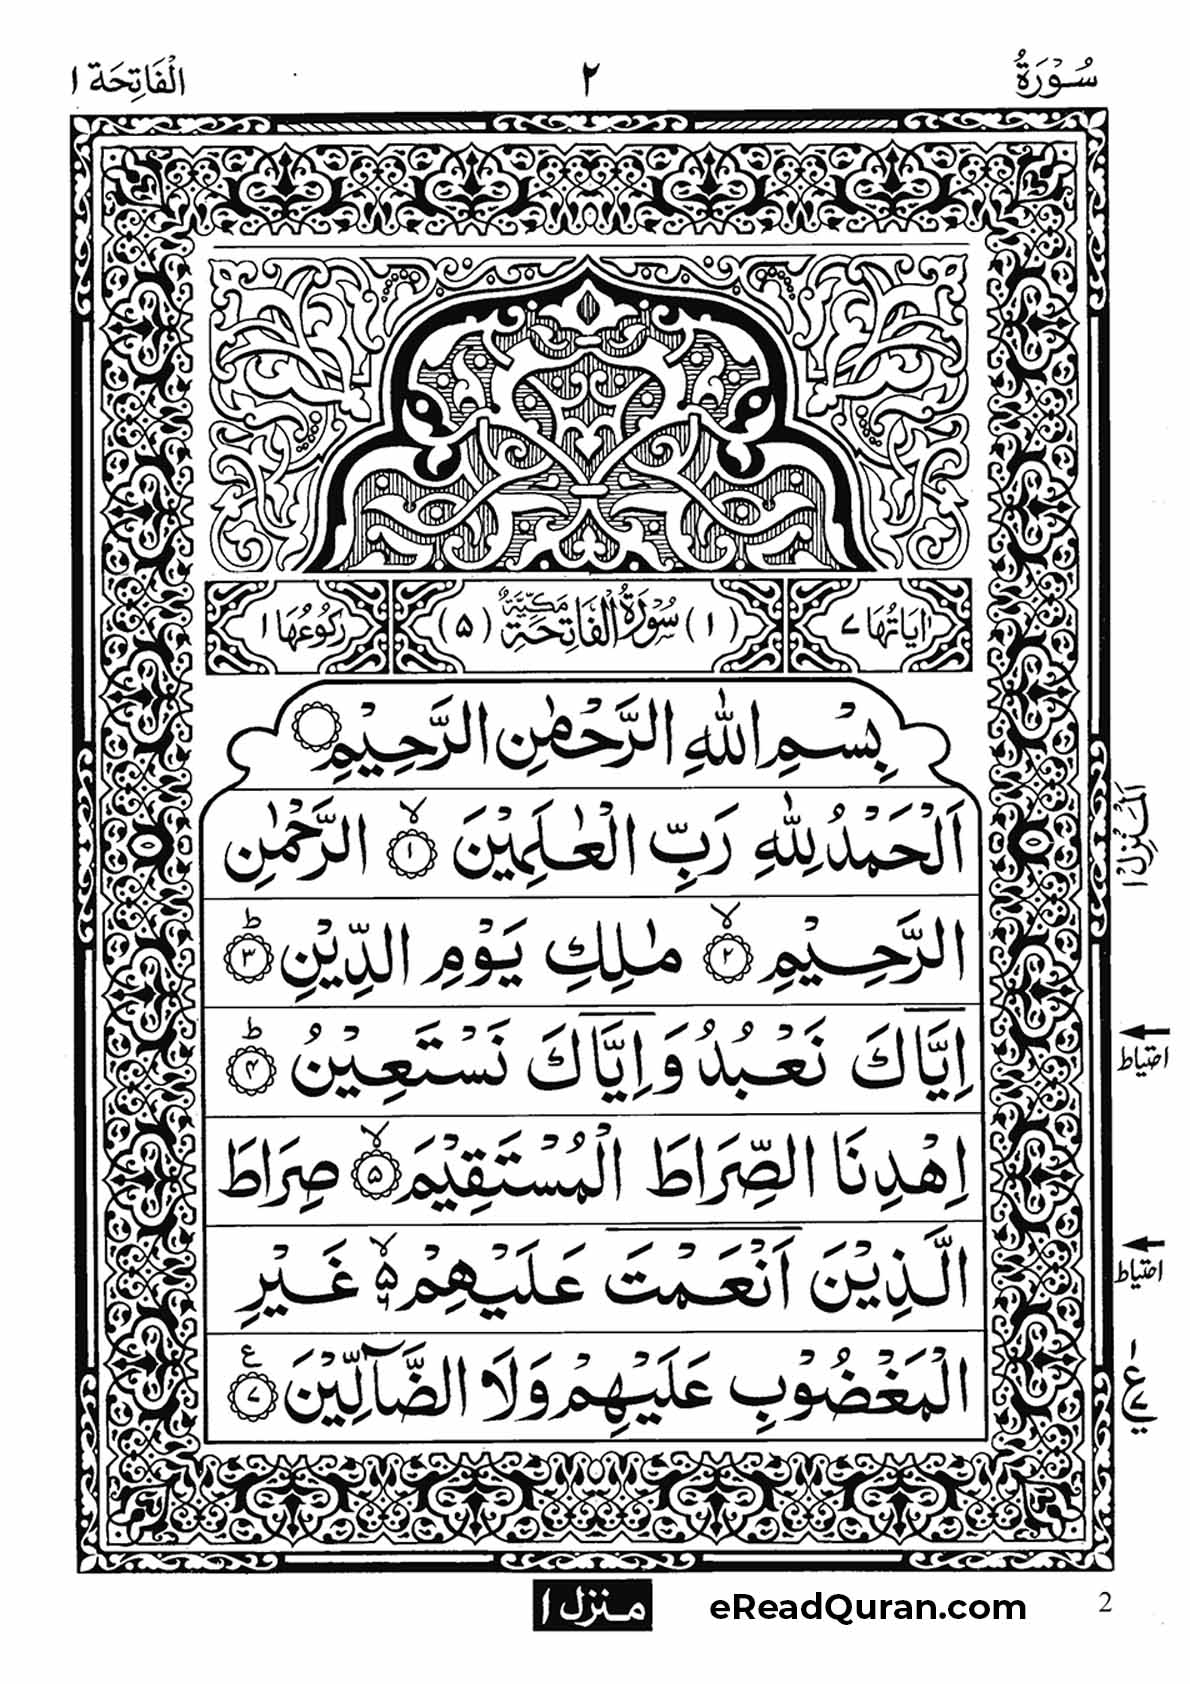 سُوْرَةُ
٢
الْفَاتِحَة ١
اٰيَاتُهَا ٧
(١) سُوْرَةُ الْفَاتِحَةِ مَكِّيَّةٌ (٥)
رُكُوْعُهَا ١
بِسْمِ اللّٰهِ الرَّحْمٰنِ الرَّحِيْمِ
اَلْحَمْدُ لِلّٰهِ رَبِّ الْعٰلَمِيْنَ ۙ﴿١﴾ الرَّحْمٰنِ
الرَّحِيْمِ ۙ﴿٢﴾ مٰلِكِ يَوْمِ الدِّيْنِ ؕ﴿٣﴾
اِيَّاكَ نَعْبُدُ وَاِيَّاكَ نَسْتَعِيْنُ ؕ﴿۴﴾
اِهْدِنَا الصِّرَاطَ الْمُسْتَقِيْمَ ۙ﴿۵﴾ صِرَاطَ
الَّذِيْنَ اَنْعَمْتَ عَلَيْهِمْ ۙ۬ۦ غَيْرِ
الْمَغْضُوْبِ عَلَيْهِمْ وَلَا الضَّآلِّيْنَ ﴿٧﴾ ع
اَلْمَنْزِل ١
احتیاط
احتیاط
منزل ١
eReadQuran.com
2